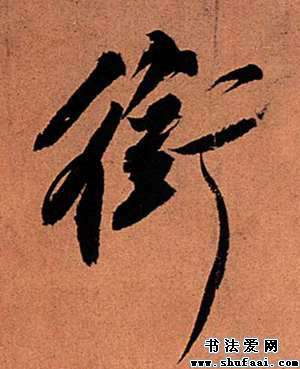 街
书法爱网
www.shufaai.com